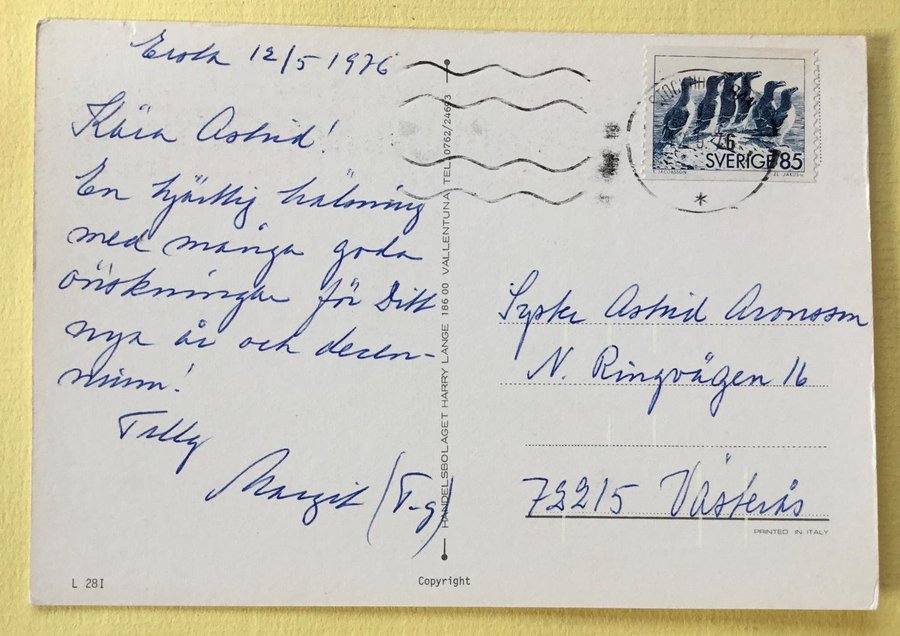 12/5 1976
Kära Astrid!
En hjärtlig hälsning
med många goda
önskningar för Ditt
nya år och decen-
nium!
Tilly
Margit (T-g)
HANDELSBOLAGET HARRY LANGE 186 00 VALLENTUNA TEL. 0762/24693
SVERIGE 85
Astrid Aronsson
N. Ringvägen 16
72215 Västerås
PRINTED IN ITALY
L 28I
Copyright